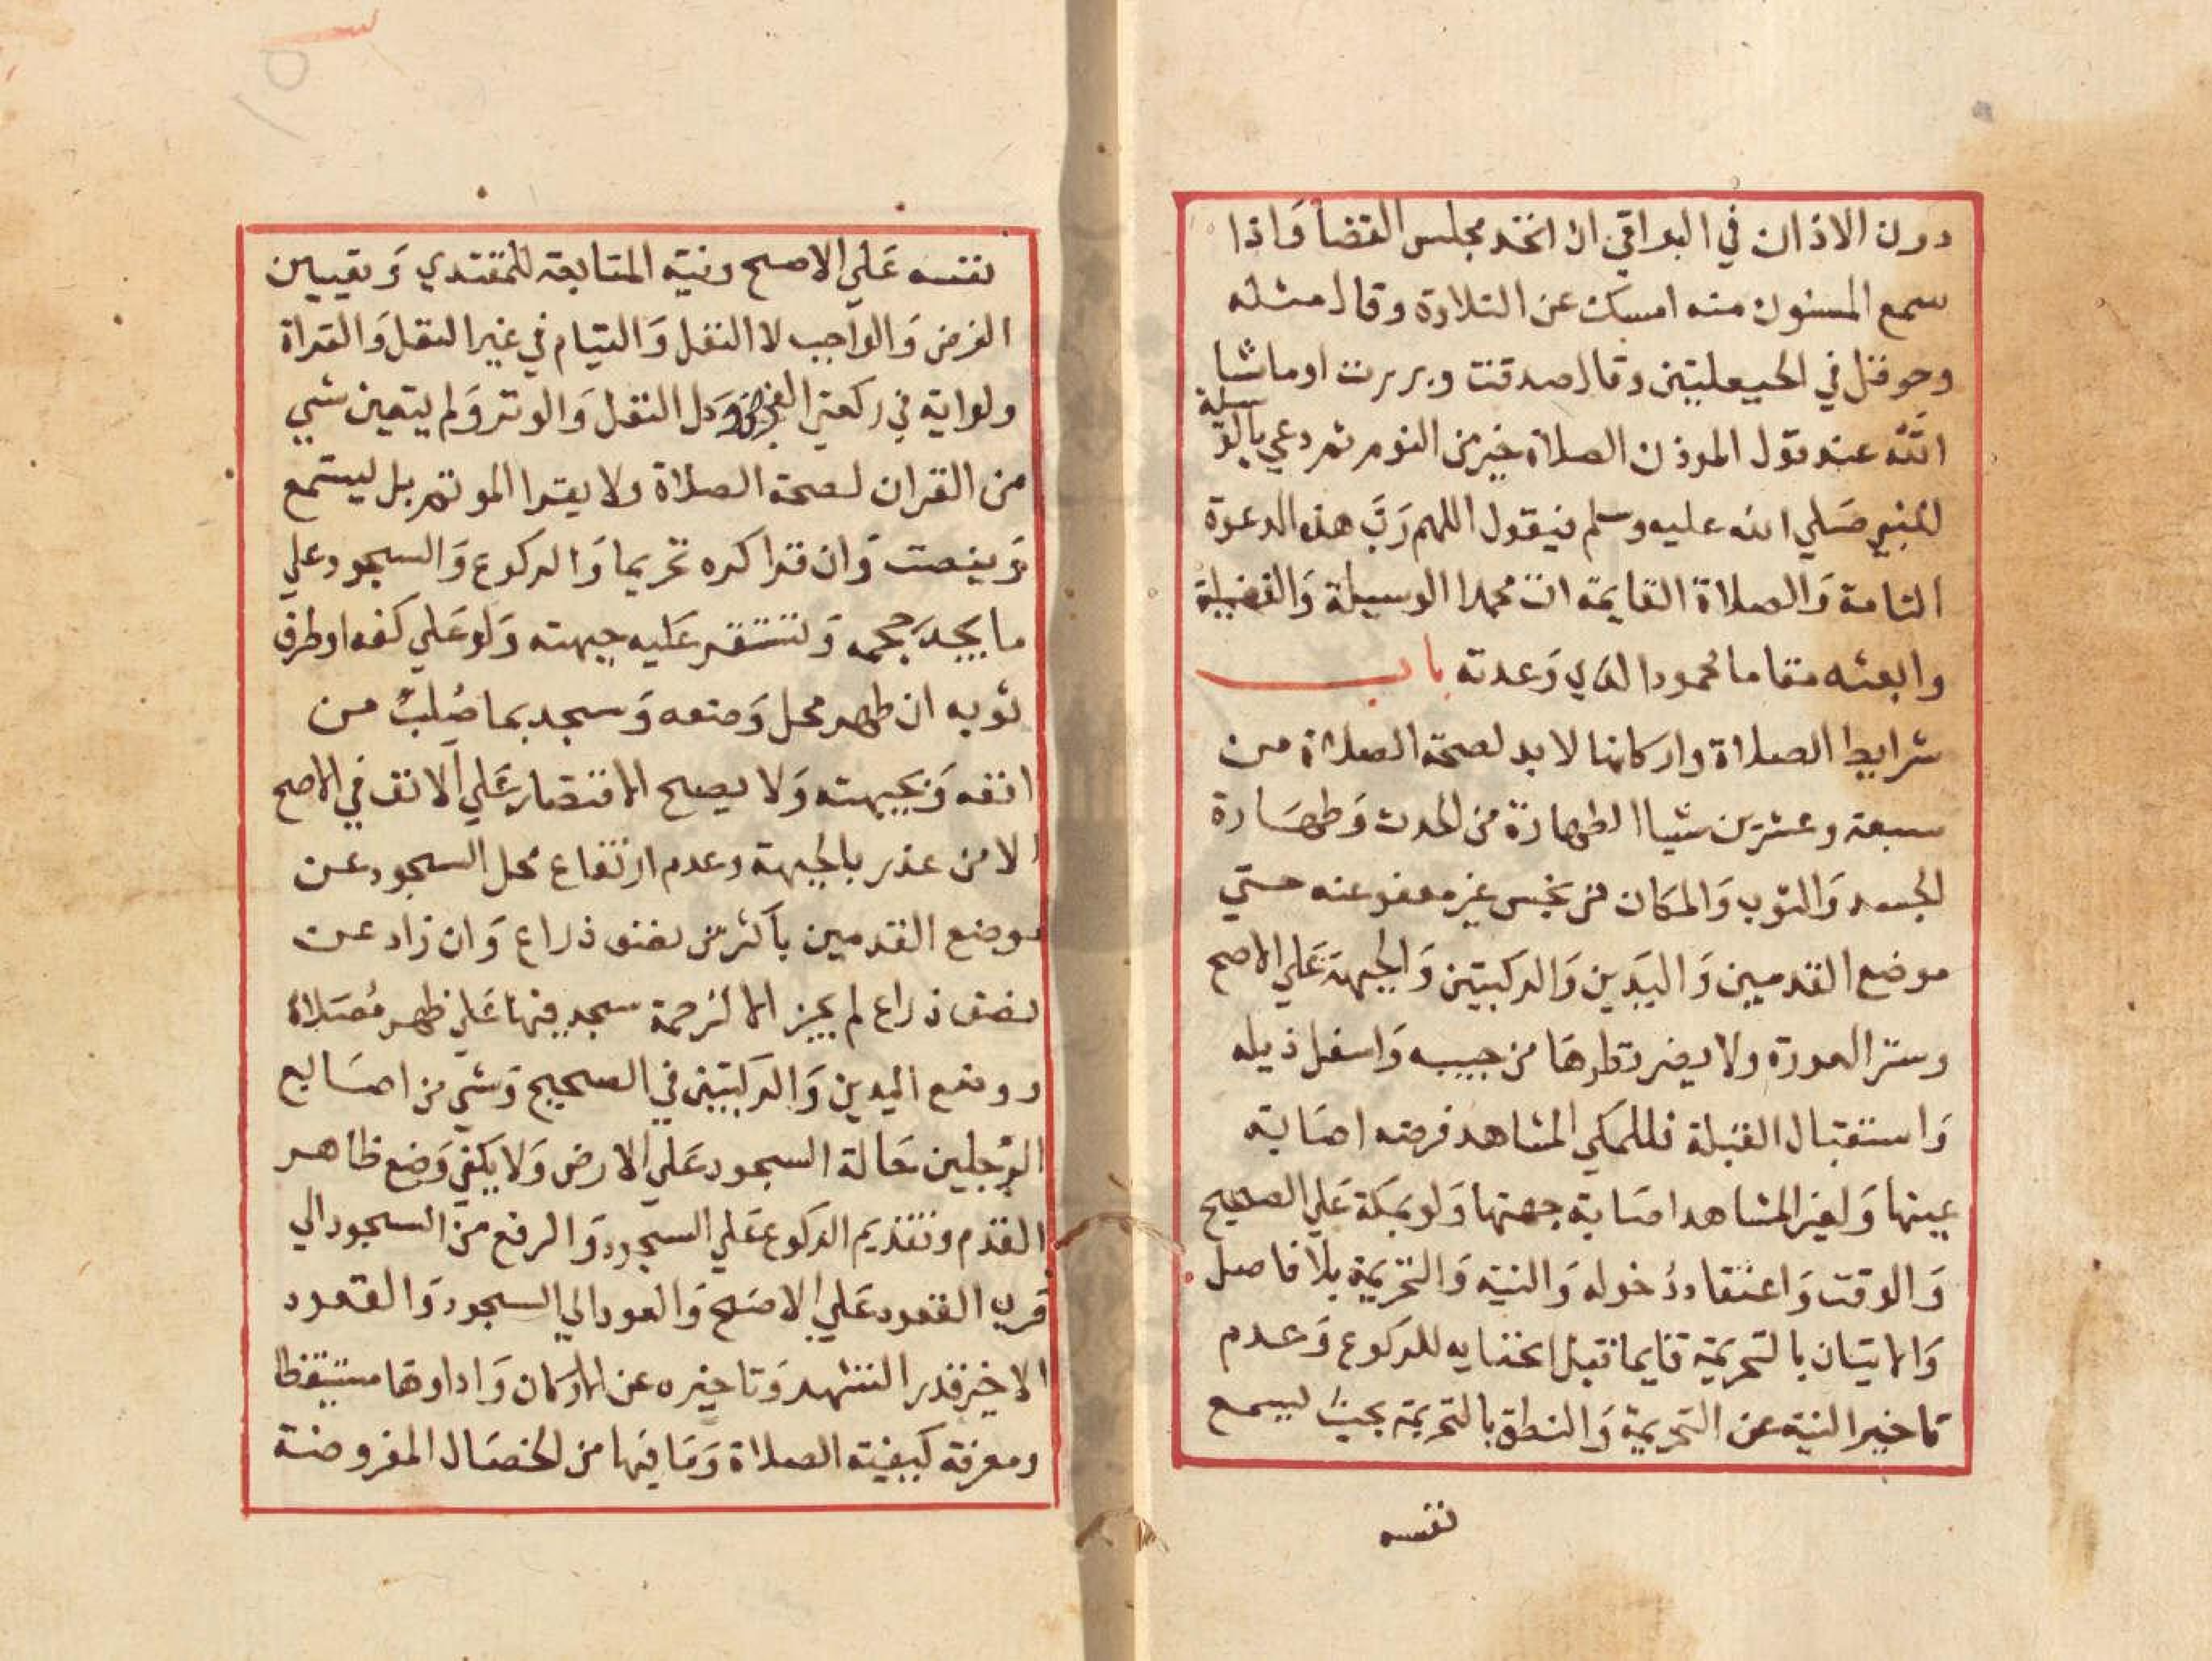 دون الاذان في البواقي ان اتخد مجلس القضا واذا
سمع المسنون منه امسك عن التلاوة وقال مثله
وحوقل في الحيعلتين وقال صدقت وبررت او ماشا
الله عند قول الموذن الصلاة خير من النوم ثم دعي بالوسيلة
للنبي صَلي الله عليه وسلم فيقول اللهم رَبَّ هذه الدعوة
التامة وَالصلاة القايمة ات محمدا الوسيلة وَالفضيلة
وابعثه مقاما محمودا الذي وَعدته باب
شرايط الصلاة واركانها لا بد لصحة الصلاة من
سبعة وعشرين شياا الطهارة من الحدث وَطهَارة
الجسد وَالثوب وَالمكان من نجس غير معفو عنه حتي
موضع القدمين وَاليَدين وَالركبتين وَالجبهة عَلي الاصح
وستر العورة ولا يضر نظرهَا من جيبه وَاسفل ذيله
وَاستقبال القبلة فللمكي المشاهد فرضه اصَابة
عينها وَلغير المشاهد اصَابة جهتها وَلو بمكة عَلي الصحيح
وَالوقت وَاعتقاد دُخوله وَالنية وَالتحريمة بلا فاصل
وَالاتيان بالتحريمة قايما قبل انحنايه للركوع وَعدم
تاخير النية عن التحريمة وَالنطق بالتحريمة بحيث ليسمع
نفسه
نفسه عَلي الاصح ونية المتابعة للمقتدي وَتعيين
الفرض وَالواجب لا النفل وَالقيام في غير النفل وَالقراة
ولو اية في ركعتي الفرض وَكل النفل وَالوتر وَلم يتعين شي
من القران لصحة الصلاة ولا يقرا الموتم بل ليستمع
وَينصت وَان قرا كره تحريما وَالركوع وَالسجود علي
ما يجد حجمه وَتستقر عَليه جبهته وَلو عَلي كفه او طرف
ثوبه ان طهر محل وَضعه وَسجد بما صُلب من
انفه وَبجبهته وَلا يصح الاقتصار عَلي الانف في الاصح
الا من عذر بالجبهة وعدم ارتفاع محل السجود عن
موضع القدمين باكثر من نصف ذراع وَان زاد عن
نصف ذراع لم يجز الا لزحمة سجد فيها عَلي ظهر مُصَلاة
ووضع اليدين وَالركبتين في الصحيح وَشي من اصَابع
الرجلين حَالة السجود عَلي الارض وَلا يكفي وَضع ظاهر
القدم وتقديم الركوع عَلي السجود وَالرفع من السجود الي
قرب القعود عَلي الاصَح وَالعود الي السجود وَالقعود
الاخير قدر التشهد وَتاخيره عن الاركان وَاداوهَا مستيقظا
ومعرفة كيفية الصلاة وَمَا فيها من الخصَال المفروضة